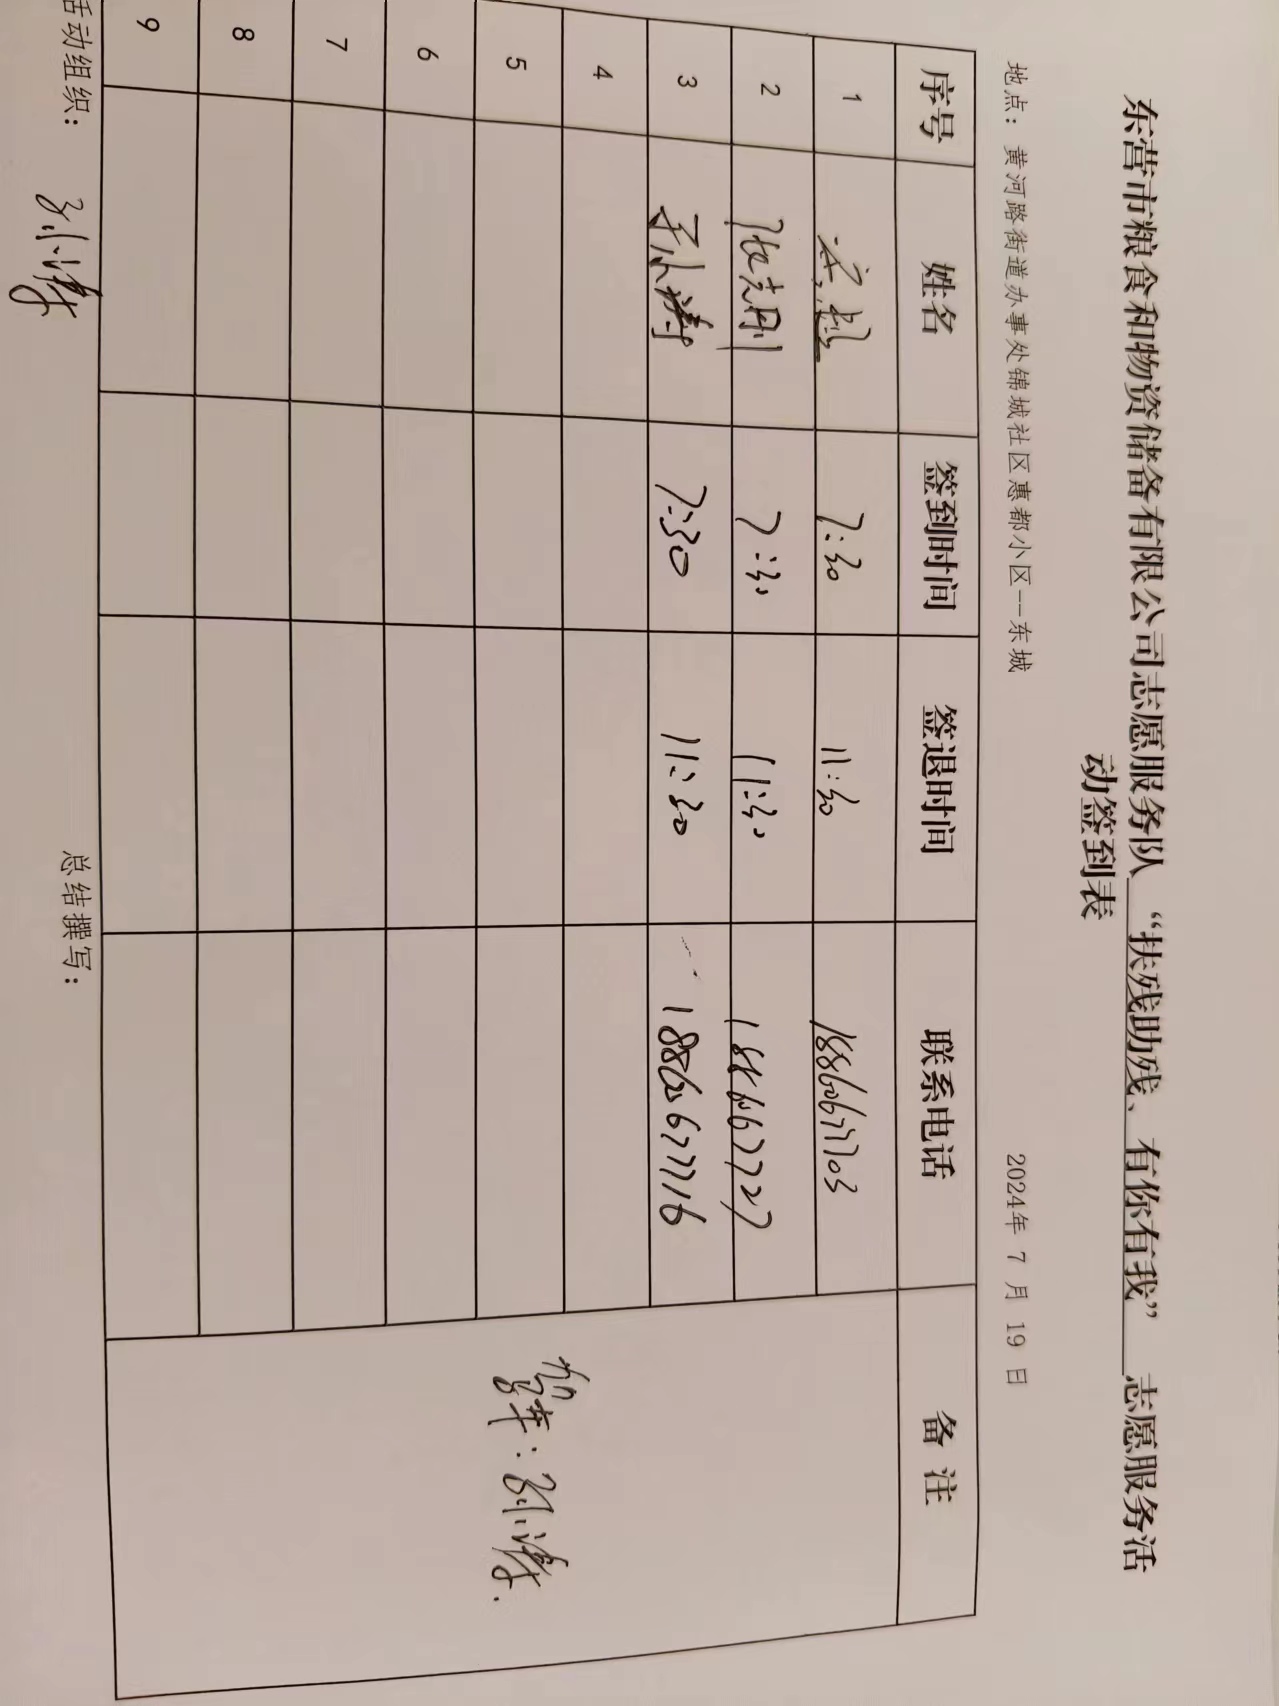 东营市粮食和物资储备有限公司志愿服务队 “扶残助残、有你有我” 志愿服务活
动签到表
地点：黄河路街道办事处锦城社区惠都小区--东城 2024年 7 月 19 日
序号 姓名 签到时间 签退时间 联系电话 备 注
1 7:30 11:30 18860677703
2 张志刚 7:30 11:30
3 孙涛 7:30 11:30 18860677716
4
5
6
7
8
9
驾车：孙涛.
活动组织：孙涛 总结撰写：